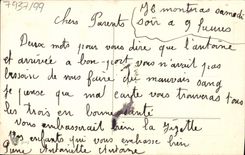 7937/99
78 monteras samedi
soir a 9 heures
Chers Parents
Deux mots pour vous dire que l'antoine
et arrivée a bon port vous n'avait pas
besoin de vous faire du mauvais sang
je pense que ma carte vous trouveras tous
les trois en bonne santé
vous embrasserait bien la
Vos enfants que vous embrasse bien
Pierre Antoinette Antoine